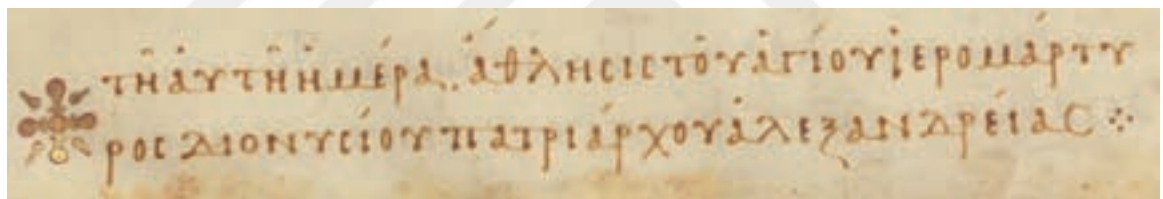 τῆ ἀυτῆ ἡμέρα. ἄθλησις τοῦ ἁγίου ἱερομάρτυ
ρος διονυσίου πατριάρχου ἀλεξανδρείας ⁘